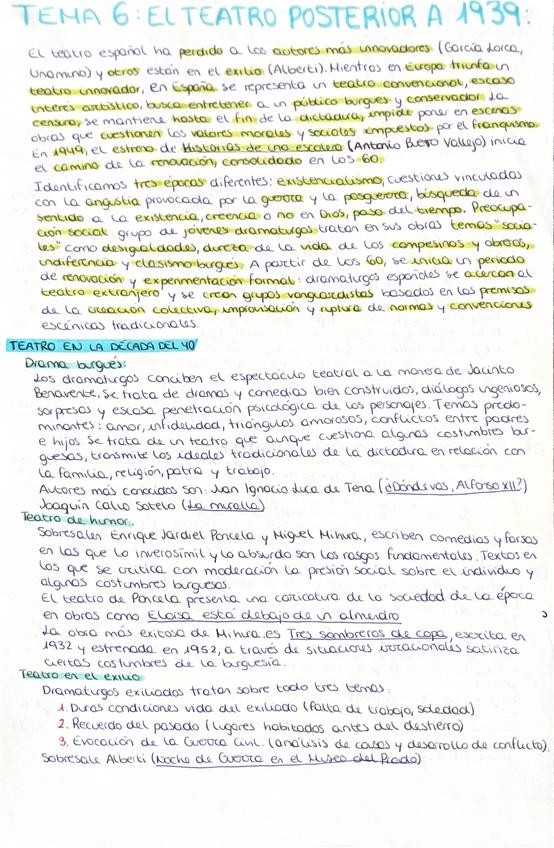 TEMA 6: EL TEATRO POSTERIOR A 1939:
El teatro español ha perdido a los autores más innovadores (García Lorca,
Unamuno) y otros están en el exilio (Alberti). Mientras en Europa triunfa un
teatro innovador, en España se representa un teatro convencional, escaso
interés artístico, busca entretener a un público burgués y conservador. La
censura, se mantiene hasta el fin de la dictadura, impide poner en escenas
obras que cuestionen los valores morales y sociales impuestos por el franquismo.
En 1949, el estreno de Historias de una escalera (Antonio Buero Vallejo) inicia
el camino de la renovación, consolidado en los 60.
Identificamos tres épocas diferentes: existencialismo, cuestiones vinculadas
con la angustia provocada por la guerra y la posguerra, búsqueda de un
sentido a la existencia, creencia o no en Dios, paso del tiempo. Preocupa-
ción social grupo de jóvenes dramaturgos tratan en sus obras temas "socia-
les" como desigualdades, dureza de la vida de los campesinos y obreros,
indiferencia y clasismo burgués. A partir de los 60, se inicia un periodo
de renovación y experimentación formal: dramaturgos españoles se acercan al
teatro extranjero y se crean grupos vanguardistas basados en las premisas
de la creación colectiva, improvisación y ruptura de normas y convenciones
escénicas tradicionales.
TEATRO EN LA DÉCADA DEL 40
Drama burgués:
Los dramaturgos conciben el espectáculo teatral a la manera de Jacinto
Benavente. Se trata de dramas y comedias bien construidos, diálogos ingeniosos,
sorpresas y escasa penetración psicológica de los personajes. Temas predo-
minantes: amor, infidelidad, triángulos amorosos, conflictos entre padres
e hijos. Se trata de un teatro que aunque cuestiona algunas costumbres bur-
guesas, transmite los ideales tradicionales de la dictadura en relación con
la familia, religión, patria y trabajo.
Autores más conocidos son: Juan Ignacio Luca de Tena (¿Dónde vas, Alfonso XII?)
Joaquín Calvo Sotelo (La muralla)
Teatro de humor.
Sobresalen Enrique Jardiel Poncela y Miguel Mihura, escriben comedias y farsas
en las que lo inverosímil y lo absurdo son los rasgos fundamentales. Textos en
los que se critica con moderación la presión social sobre el individuo y
algunas costumbres burguesas.
El teatro de Poncela presenta una caricatura de la sociedad de la época
en obras como Eloísa está debajo de un almendro
La obra más exitosa de Mihura es Tres sombreros de copa, escrita en
1932 y estrenada en 1952, a través de situaciones irracionales satiriza
ciertas costumbres de la burguesía.
Teatro en el exilio
Dramaturgos exiliados tratan sobre todo tres temas:
1. Duras condiciones vida del exiliado (falta de trabajo, soledad)
2. Recuerdo del pasado (lugares habitados antes del destierro)
3. Evocación de la Guerra Civil. (análisis de causas y desarrollo de conflicto).
Sobresale Alberti (Noche de Guerra en el Museo del Prado)